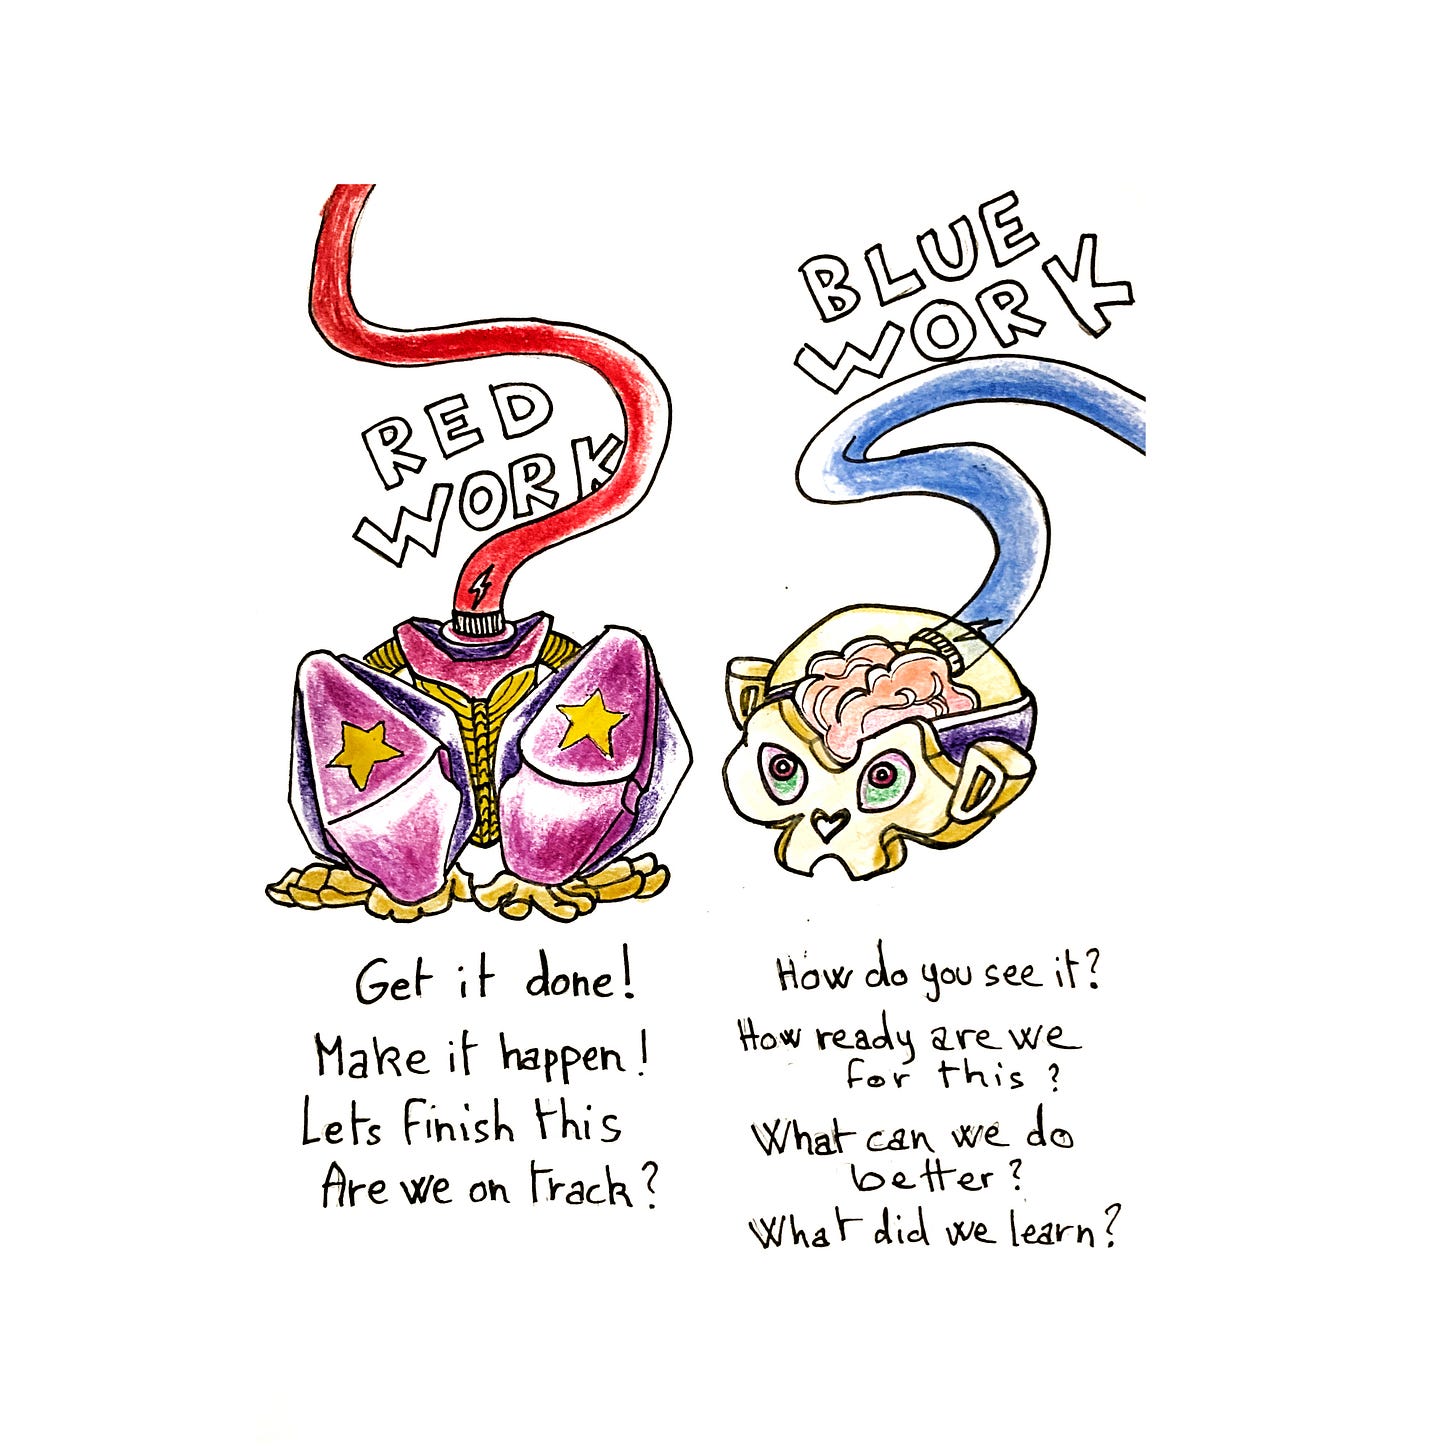 RED
WORK
Get it done!
Make it happen!
Lets finish this
Are we on track?
BLUE
WORK
How do you see it?
How ready are we
for this ?
What can we do
better?
What did we learn?